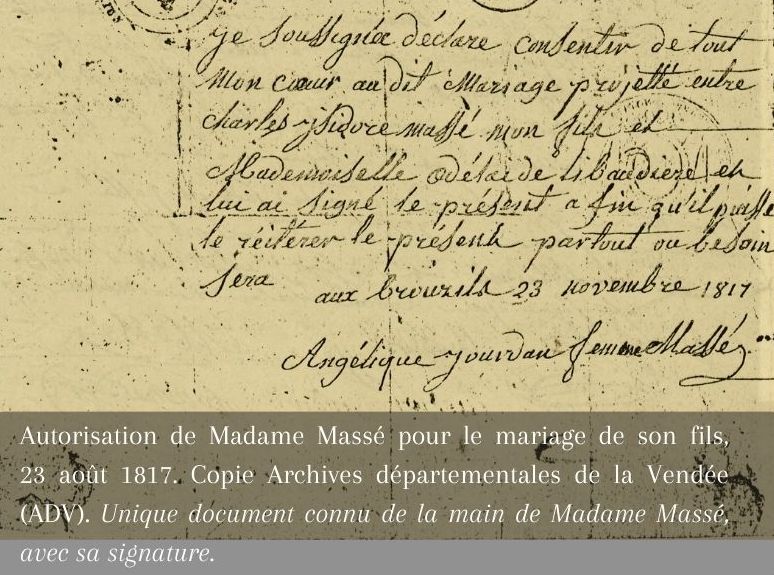 je soussignée déclare consentir de tout
mon cœur au dit mariage projetté entre
charles ysidore massé mon fils et
Mademoiselle adélaide libaudiere et
lui ai signé le présent a fin qu'il puisse
le réitérer le présent partout ou besoin
sera
aux brouzils 23 novembre 1817
Angélique jourdan femme Massé
Autorisation de Madame Massé pour le mariage de son fils,
23 août 1817. Copie Archives départementales de la Vendée
(ADV). Unique document connu de la main de Madame Massé,
avec sa signature.